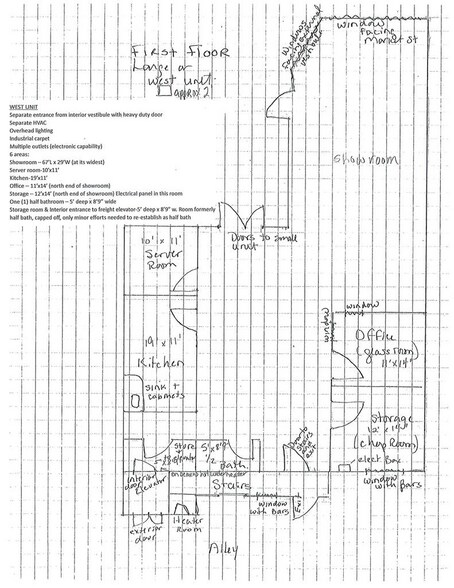 FIRST FLOOR
Large or
West unit
approx 2'
Windows
Facing
vestibule
Window
Facing
Market St
WEST UNIT
Separate entrance from interior vestibule with heavy duty door
Separate HVAC
Overhead lighting
Industrial carpet
Multiple outlets (electronic capability)
6 areas:
Showroom – 67'L x 29'W (at its widest)
Server room-10'x11'
Kitchen-19'x11'
Office – 11'x14' (north end of showroom)
Storage – 12'x14' (north end of showroom) Electrical panel in this room
One (1) half bathroom – 5' deep x 8'9" wide
Storage room & Interior entrance to freight elevator-5' deep x 8'9" w. Room formerly
half bath, capped off, only minor efforts needed to re-establish as half bath
Showroom
Doors to small
unit
10' x 11'
Server
Room
window
window
Office
(glass room)
11'x14'
19' x 11'
Kitchen
sink +
cabinets
Storage
12' x 14'
(cheap Room)
elect Box
window
with Bars
store
5' x 8'9"
1/2
bath
Door to
stairs
interior
door
Elevator
Stairs
window
with Bars
Exit
exterior
door
Heater
Room
Alley